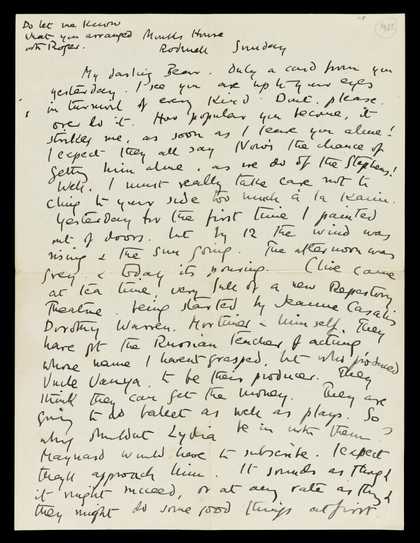 Do let me know
what you arranged
with Roger.
Monks House
Rodmell Sunday
My darling Bear. Only a card from you
yesterday. I see you are up to your eyes
in turmoil of every kind. Dont please
over do it. How popular you become, it
strikes me, as soon as I leave you alone!
I expect they all say Now's the chance of
getting him alone, as we do of the Stephens!
Well, I must really take care not to
cling to your side too much à la Karin.
Yesterday for the first time I painted
out of doors. but by 12 the wind was
rising & the sun going. The afternoon was
grey & today its pouring. Clive came
at tea time, very full of a new Repertory
Theatre, being started by Jeanne Casalis
Dorothy Warren, Mortimer & himself. They
have got the Russian teacher of acting
whose name I havent grasped, but who produced
Uncle Vanya, to be their producer. They
think they can get the money. They are
going to do ballet as well as plays. So
why shouldnt Lydia be in with them.
Maynard would have to subscribe. I expect
theyll approach him. It sounds as though
it might succeed, or at any rate as though
they might do some good things at first.